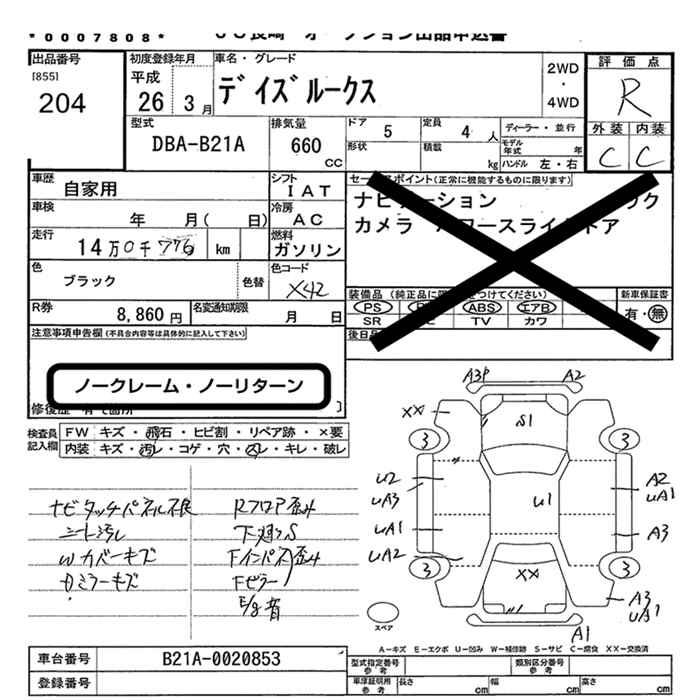 *0007808*
出品番号
[855]
204
初度登録年月
平成
26 3月
車名・グレード
デイズルークス
2WD
・
4WD
評価点
R
外装 内装
C C
型式
DBA-B21A
排気量
660
CC
ドア 5
定員 4 人
形状
積載 kg
ディーラー・並行
モデル年式 年
ハンドル 左・右
車歴
自家用
シフト
IAT
車検
年 月( 日)
冷房
AC
走行
14万0千776 km
燃料
ガソリン
色
ブラック
色替
色コード
X42
R券
8,860円
名変通知期限
月 日
注意事項申告欄(不具合内容等は具体的に記入して下さい)
ノークレーム・ノーリターン
(正常に機能するものに限ります)
カメラ
装備品
PS ABS エアB
SR TV カワ
新車保証書
有・無
検査員
記入欄
FW キズ・飛石・ヒビ割・リペア跡・×要
内装 キズ・汚レ・コゲ・穴・凹レ・キレ・破レ
ナビタッチパネル不良
シート汚レ
Wカバーキズ
Dミラーキズ
Rフロア歪ミ
下廻りS
Fインパネ歪ミ
Fピラー
A3P A2
XX S1
3 3
U2
UA3
U1
A2
UA1
UA1 A3
UA2
3 3
XX
A3
UA1
A1
スペア
A-キズ E-エクボ U-凹み W-補修跡 S-サビ C-腐食 XX-交換済
車台番号
B21A-0020853
登録番号
型式指定番号
参考
類別区分番号
参考
車庫証明用
参考
長さ cm 幅 cm 高さ cm